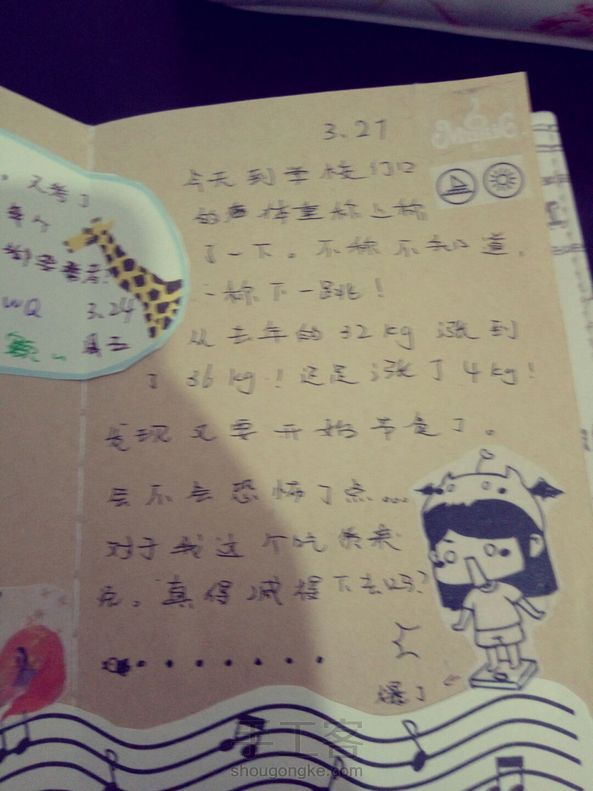 又考了
WQ 3.24
周三
3.27
今天到学校门口
的身体重称上称
了一下。不称不知道，
一称下一跳！
从去年的32kg涨到
了36kg！还是涨了4kg！
发现又要开始节食了。
会不会恐怖了点……
对于我这个吃货来
说，真得减得下去吗？
爆了
手工客
shougongke.com